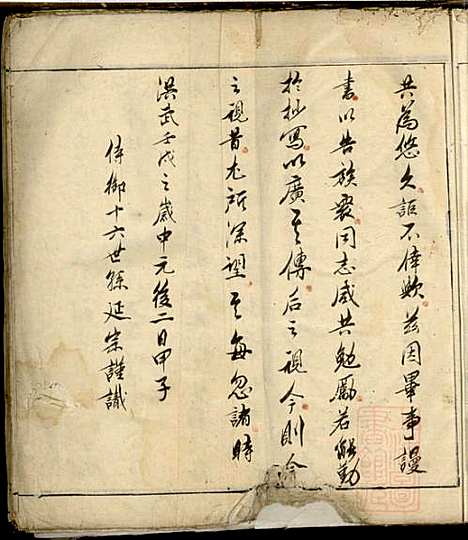 共為悠久詎不偉歟茲因畢事謾
書以告族衆同志咸共勉勵若能勤
於抄寫以廣其傳后之視今則今
之視昔尤所深望其毎忽諸時
洪武壬戌之歲中元後二日甲子
侍御十六世孫延宗謹識